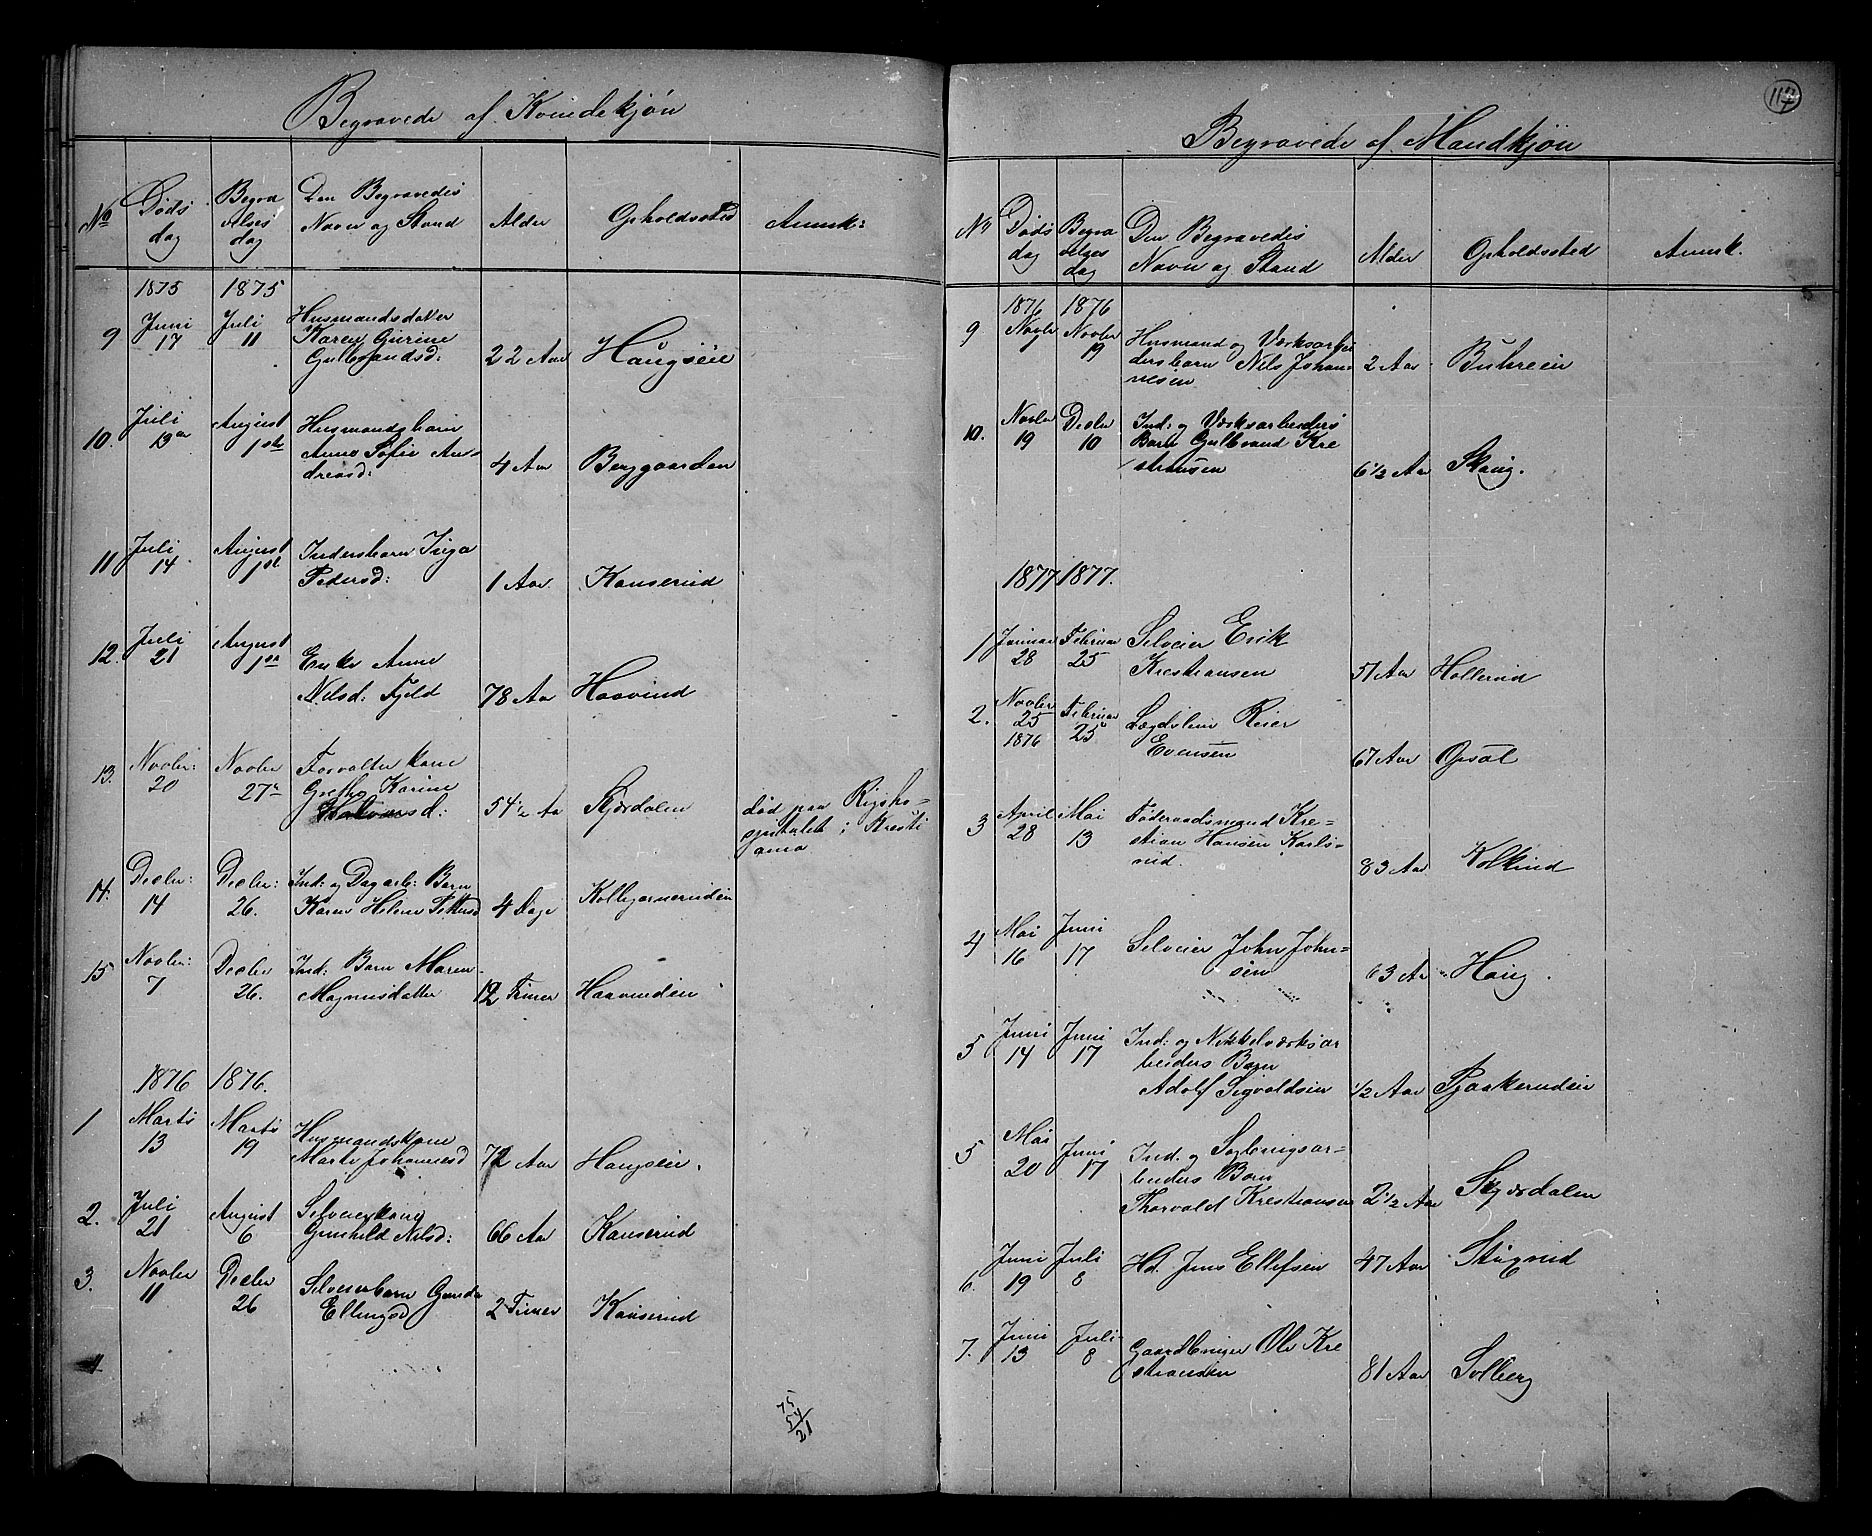 Begravede af Kvindekjøn
No
Døds
dag
Begra
velses
dag
Den Begravedes
Navn og Stand
Alder
Opholdssted
Anmk:
1875 1875
9 Juni 17 Juli 11 Husmandsdatter
Karen Gurine
Gulbrandsd: 22 Aar Haugseie
10. Juli 19de August 1ste Husmandsbarn
Anne Sofie An-
dreasd: 4 Aar Berggaarden
11 Juli 14 August 1ste Indersbarn Inga
Pedersd: 1 Aar. Kanserud
12. Juli 21 August 1ste Enke Anne
Nilsd: Fjeld 78 Aar Haavind
13. Novbr: 20 Novbr 27de Forvalterkone
Grethe Karine
Halvorsd: 54 1/2 Aa Skjærdalen død paa Rigsho-
spitalet i Kresti
ania
14. Decbr: 14 Decbr: 26. Ind: og Dagarb: Barn
Karen Helene Pettersd 4 Dage
15 Novbr: 7 Decbr 26. Ind: Barn Maren
Magnusdatter 12 Timer Haavindeie
1876 1876.
1 Marts 13 Marts 19 Husmandskone
Marte Johannesd 72 Aar Haugseie.
2. Juli 21 August 6 Selveierkone
Gunhild Nilsd: 66 Aar Kanserud
3. Novbr 11 Decbr 26 Selveierbarn Gunda
Ellingsd 2 Timer Kanserud
75
54
21
117
Begravede af Mandkjøn
No
Døds
dag
Begra
velses
dag
Den Begravedes
Navn og Stand
Alder
Opholdssted
Anmk.
1876 1876
9 Novbr 7 Novbr 19 Husmand og Værksarbei
dersbarn Nils Johan-
nesen 2 Aar Buhreeie
10. Novbr 19 Decbr 10 Ind: og Værksarbeiders
Barn Gulbrand Kre
stiansen 6 1/2 Aar Skaug.
1877 1877.
1 Januar 28 Februar 25 Selveier Erik
Krestiansen 51 Aar Hollerud
2. Novbr 25 1876 Februar 25 Lægdslem Reier
Evensen 67 Aar Opsal
3 April 28 Mai 13 Føderaadsmand Kre-
stian Hansen Karls-
rud. 83 Aar
4 Mai 16 Juni 17 Selveier John John-
sen 63 Aar Haug.
5 Juni 14 Juni 17 Ind: og Nikkelværksar
beiders Barn
Adolf Sigvaldsen 1/2 Aar Pjaakerudeie
5 Mai 20 Juni 17 Ind. og Sagbrugsar-
beiders Barn
Thorvald Krestiansen 2 1/2 Aar Skjærdalen
6. Juni 19 Juli 8 Hd. Jens Ellefsen 47 Aar Stugrud
7. Juni 13 Juli 8 Gaardbruger Ole Kre
stiansen 81 Aar Solberg